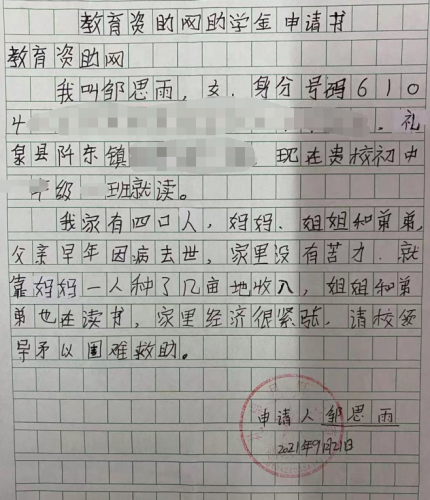 教育资助网助学金申请书
教育资助网
我叫邹思雨，女，身份号码610
4 礼
泉县阡东镇 现在贵校初中
年级 班就读。
我家有四口人，妈妈、姐姐和弟弟，
父亲早年因病去世，家里没有苦力，就
靠妈妈一人种了几亩地收入，姐姐和弟
弟也在读书，家里经济很紧张，请校领
导予以困难救助。
申请人邹思雨
2021年9月21日